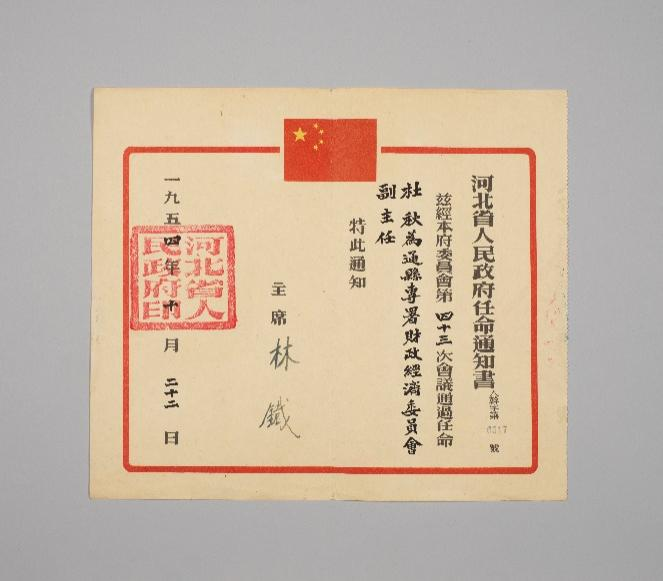 河北省人民政府任命通知書
人幹字第 0317 號
茲經本府委員會第四十三次會議通過任命
杜秋為通縣專署財政經濟委員會
副主任
特此通知
主席 林鐵
一九五四年十月二十二日
河北省人
民政府印